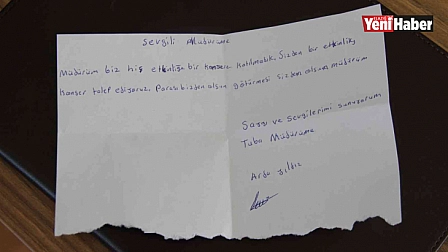 ELAZIĞ
YeniHaber
Sevgili Müdürüme
Müdürüm biz hiç etkinliğe bir konsere katılmadık. Sizden bir etkinlik,
konser talep ediyoruz. Parası bizden olsun götürmesi sizden olsun müdürüm
Saygı ve sevgilerimi sunuyorum
Tuba Müdürüme
Arda yıldız